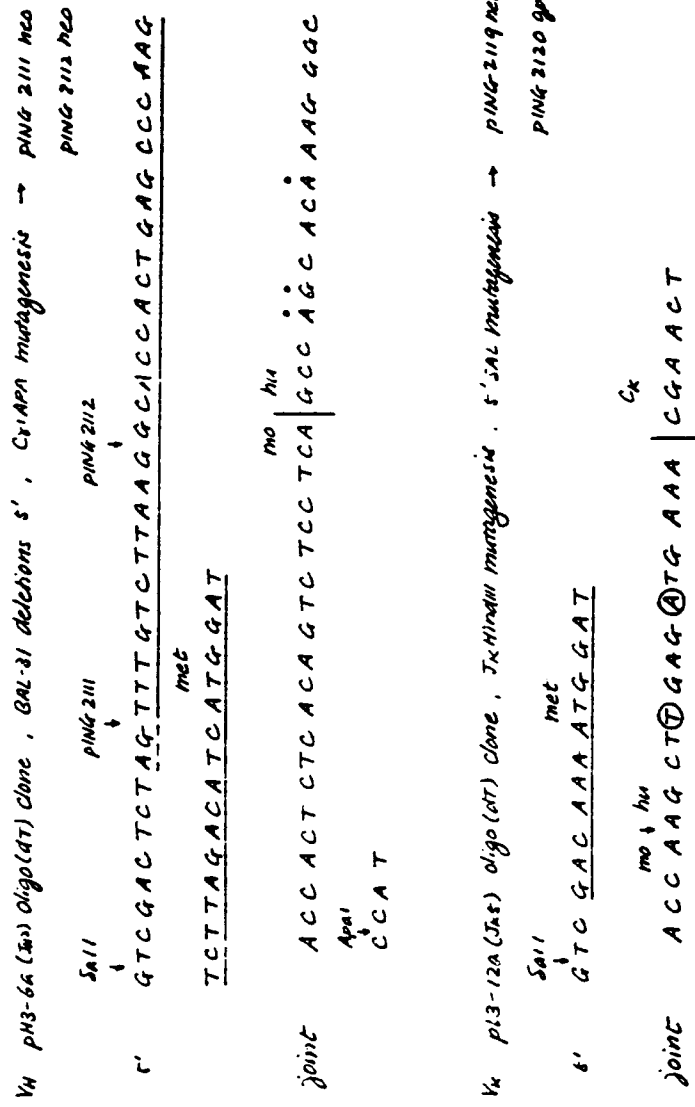 VH pH3-6a (JH2) Oligo(dT) clone, BAL-31 deletions 5', Cγ1APA mutagenesis → pING 2111 neo
pING 2112 neo
SalI pING 2111 pING 2112
5' GTCGACTCTAGTTTGTCTTAAGGCACCACTGAGCCCAAG
met
TCTTAGACATCATGGAT
mo hu
joint ACC ACT CTC ACA GTC TCC TCA GCC AGC ACA AAG GGC
ApaI
C CAT
VK pL3-12a (JK5) oligo(dT) clone, JKHindIII mutagenesis, 5'SAL mutagenesis → pING 2119 ne
pING 2120 gp
SalI met
5' GTC GACAAAATGGAT
mo hu CK
joint ACC AAG CTT GAG ATG AAA CGA ACT